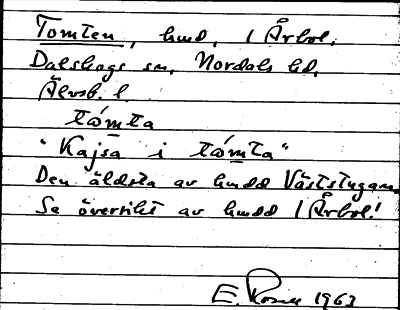 Tomten, hmd, 1 Årbol,
Dalskogs sn, Nordals hd,
Älvsb. l.
tómta
"Kajsa i tómta"
Den äldsta av hmdd Väststugan.
Se översikt av hmdd 1 Årbol!
E. Rosell 1963